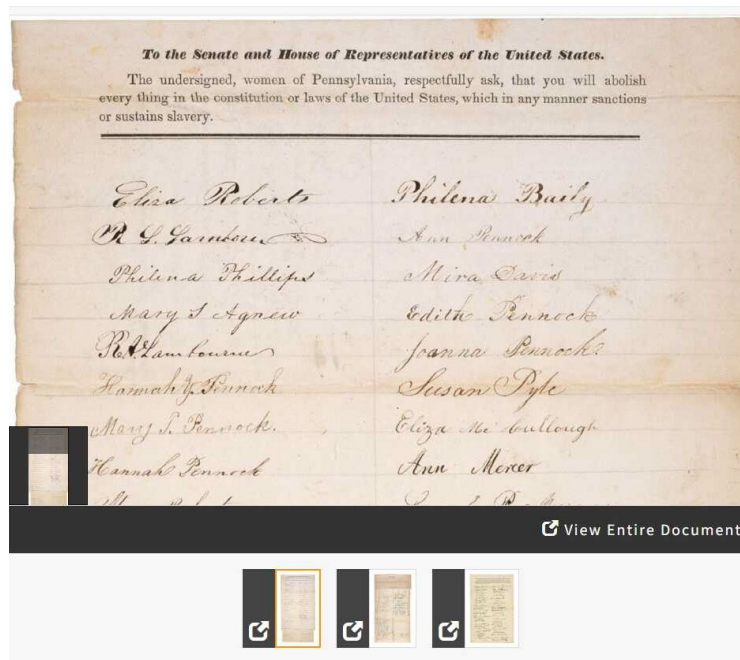 To the Senate and House of Representatives of the United States.
The undersigned, women of Pennsylvania, respectfully ask, that you will abolish
every thing in the constitution or laws of the United States, which in any manner sanctions
or sustains slavery.
Eliza Roberts
R L. Lamborn
Philena Phillips
Mary S Agnew
R. Lambourne
Hannah Y. Pennock
Mary T. Pennock.
Hannah Pennock
Philena Baily
Ann Pennock
Mira Davis
Edith Pennock
Joanna Pennock
Susan Pyle
Eliza Mc Cullough
Ann Mercer
View Entire Document